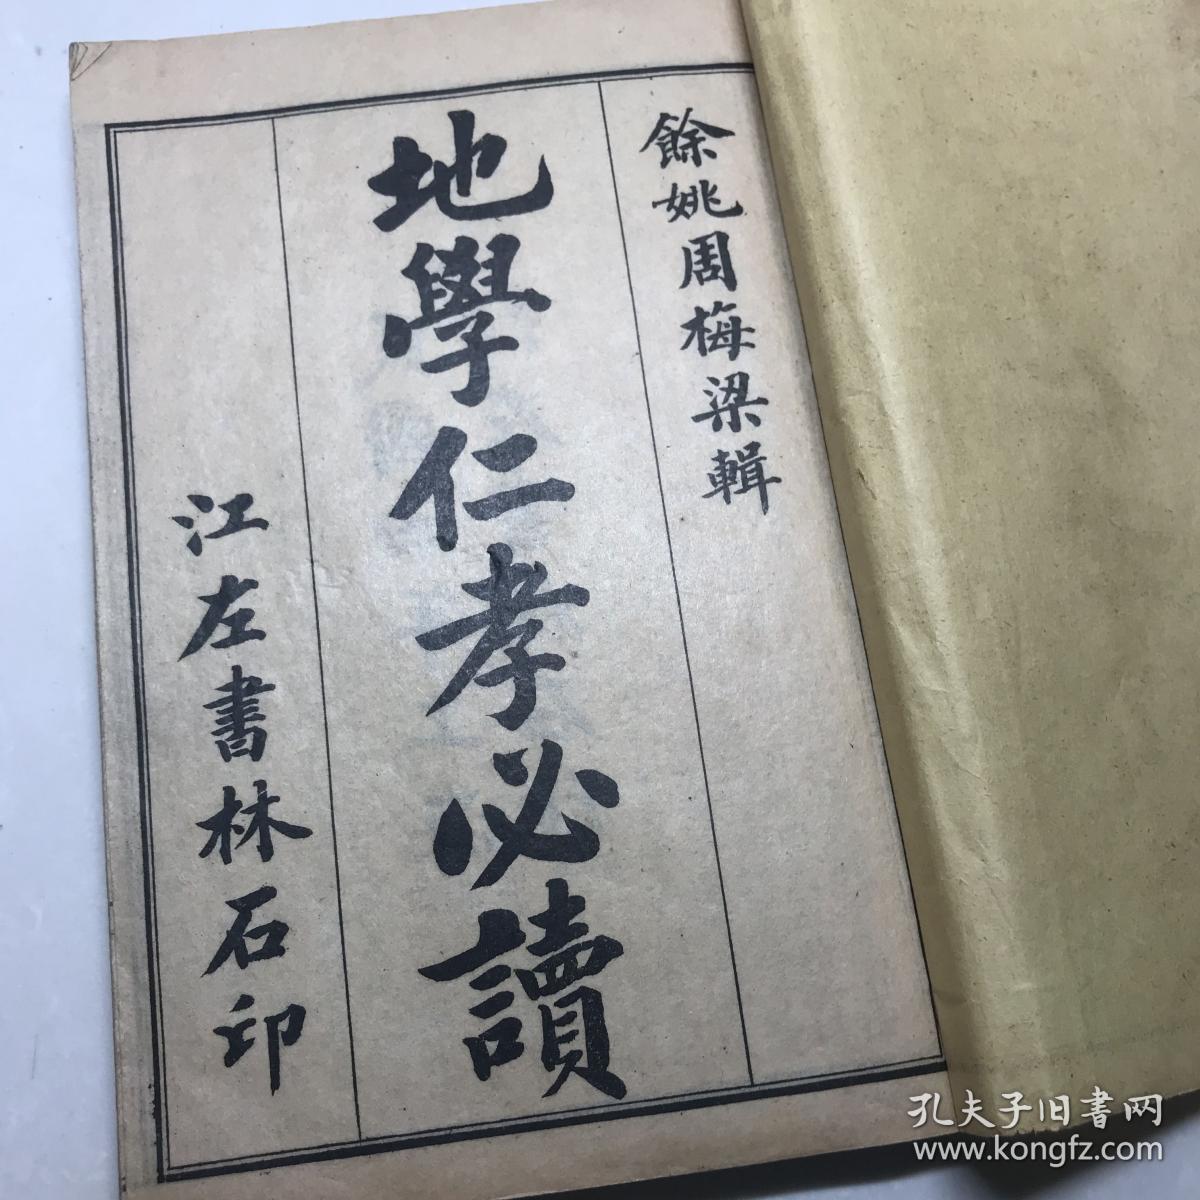 餘姚周梅梁輯
地學仁孝必讀
江左書林石印
孔夫子旧書网
www.kongfz.com